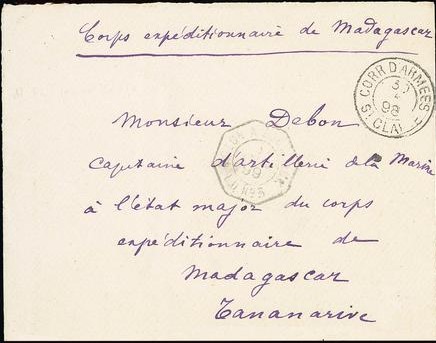 Corps expéditionnaire de Madagascar
CORR. D'ARMÉES
98
Monsieur Debon
capitaine d'artillerie de la Marine
à l'état major du corps
expéditionnaire de
Madagascar
Tananarive